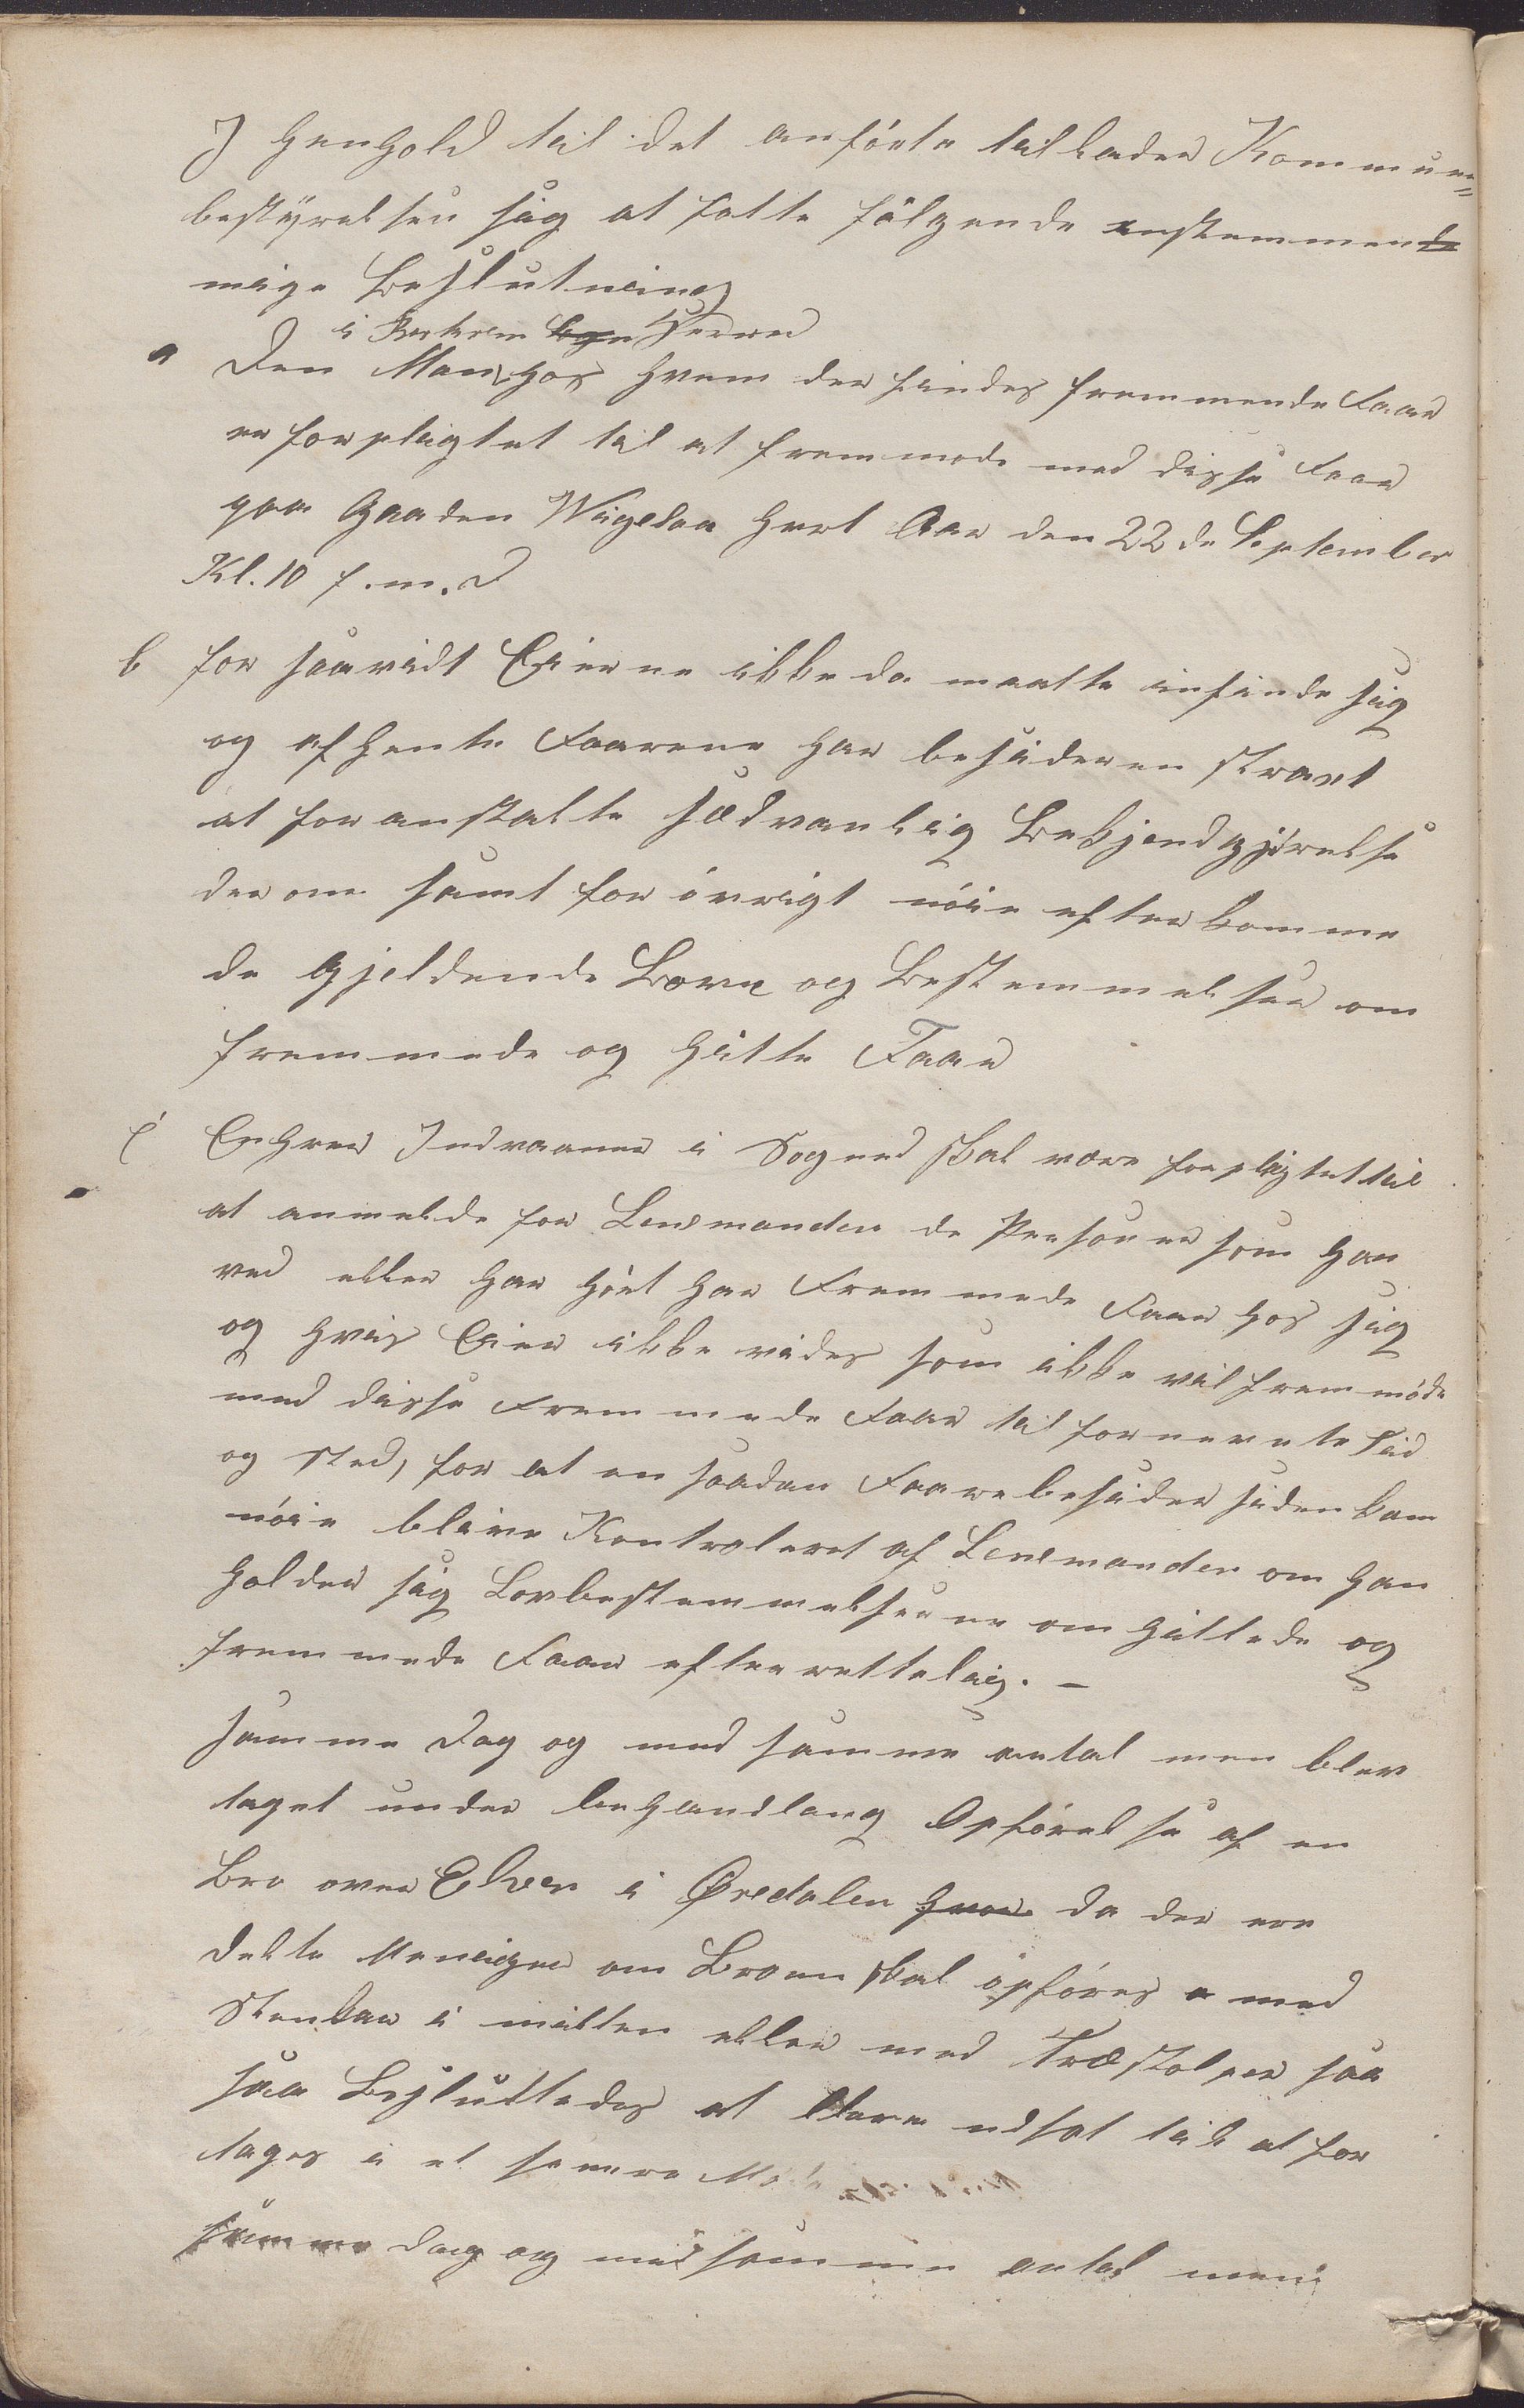 I Henhold til det anförte tillader Kommune=
bestyrelsen sig at fatte fölgende enstemmen
mige Beslutning
i Bjerkreim Herred
a Den Man hos hvem der findes fremmende Faar
er forpligtet til at fremmöde med disse Faar
paa Gaaden Wigesaa hvert Aar den 22de September
Kl. 10 f.m.d
b for saavidt Eierne ikke da maatte infinde sig
og afhente Faarene har besideren straxt
at foranstalte sædvanlig Bekjendgjörelse
derom samt for övrigt nöie efterkomme
de Gjeldende Love og Bestemmelser om
fremmede og hitte Faar
c Enhver Indvaaner i Sogned skal være forpligtet til
at anmelde for Lensmanden de Personer som han
ved eller har hört har Fremmede Faar hos sig
og hvis Eier ikke vides som ikke vil fremmöde
med disse Fremmede Faar til fornevnte Tid
og sted, for at en saadan Faarebesider siden kan
nöie blive Kontroleret af Lensmanden om han
holder sig Lovbestemmelserne om hittede og
fremmede Faar efterrettelig. -
samme Dag og med samme antal men blev
taget under behandlang Opförelse af en
Bro over Elven i Øredalen hvor da der var
delte Meniger om Broen skal opföres med
Stenkar i mitten eller med Træstolper saa
saa Besluttedes at Være udsat til at for
tages i et senere Möde
samme Dag og med samme antal men